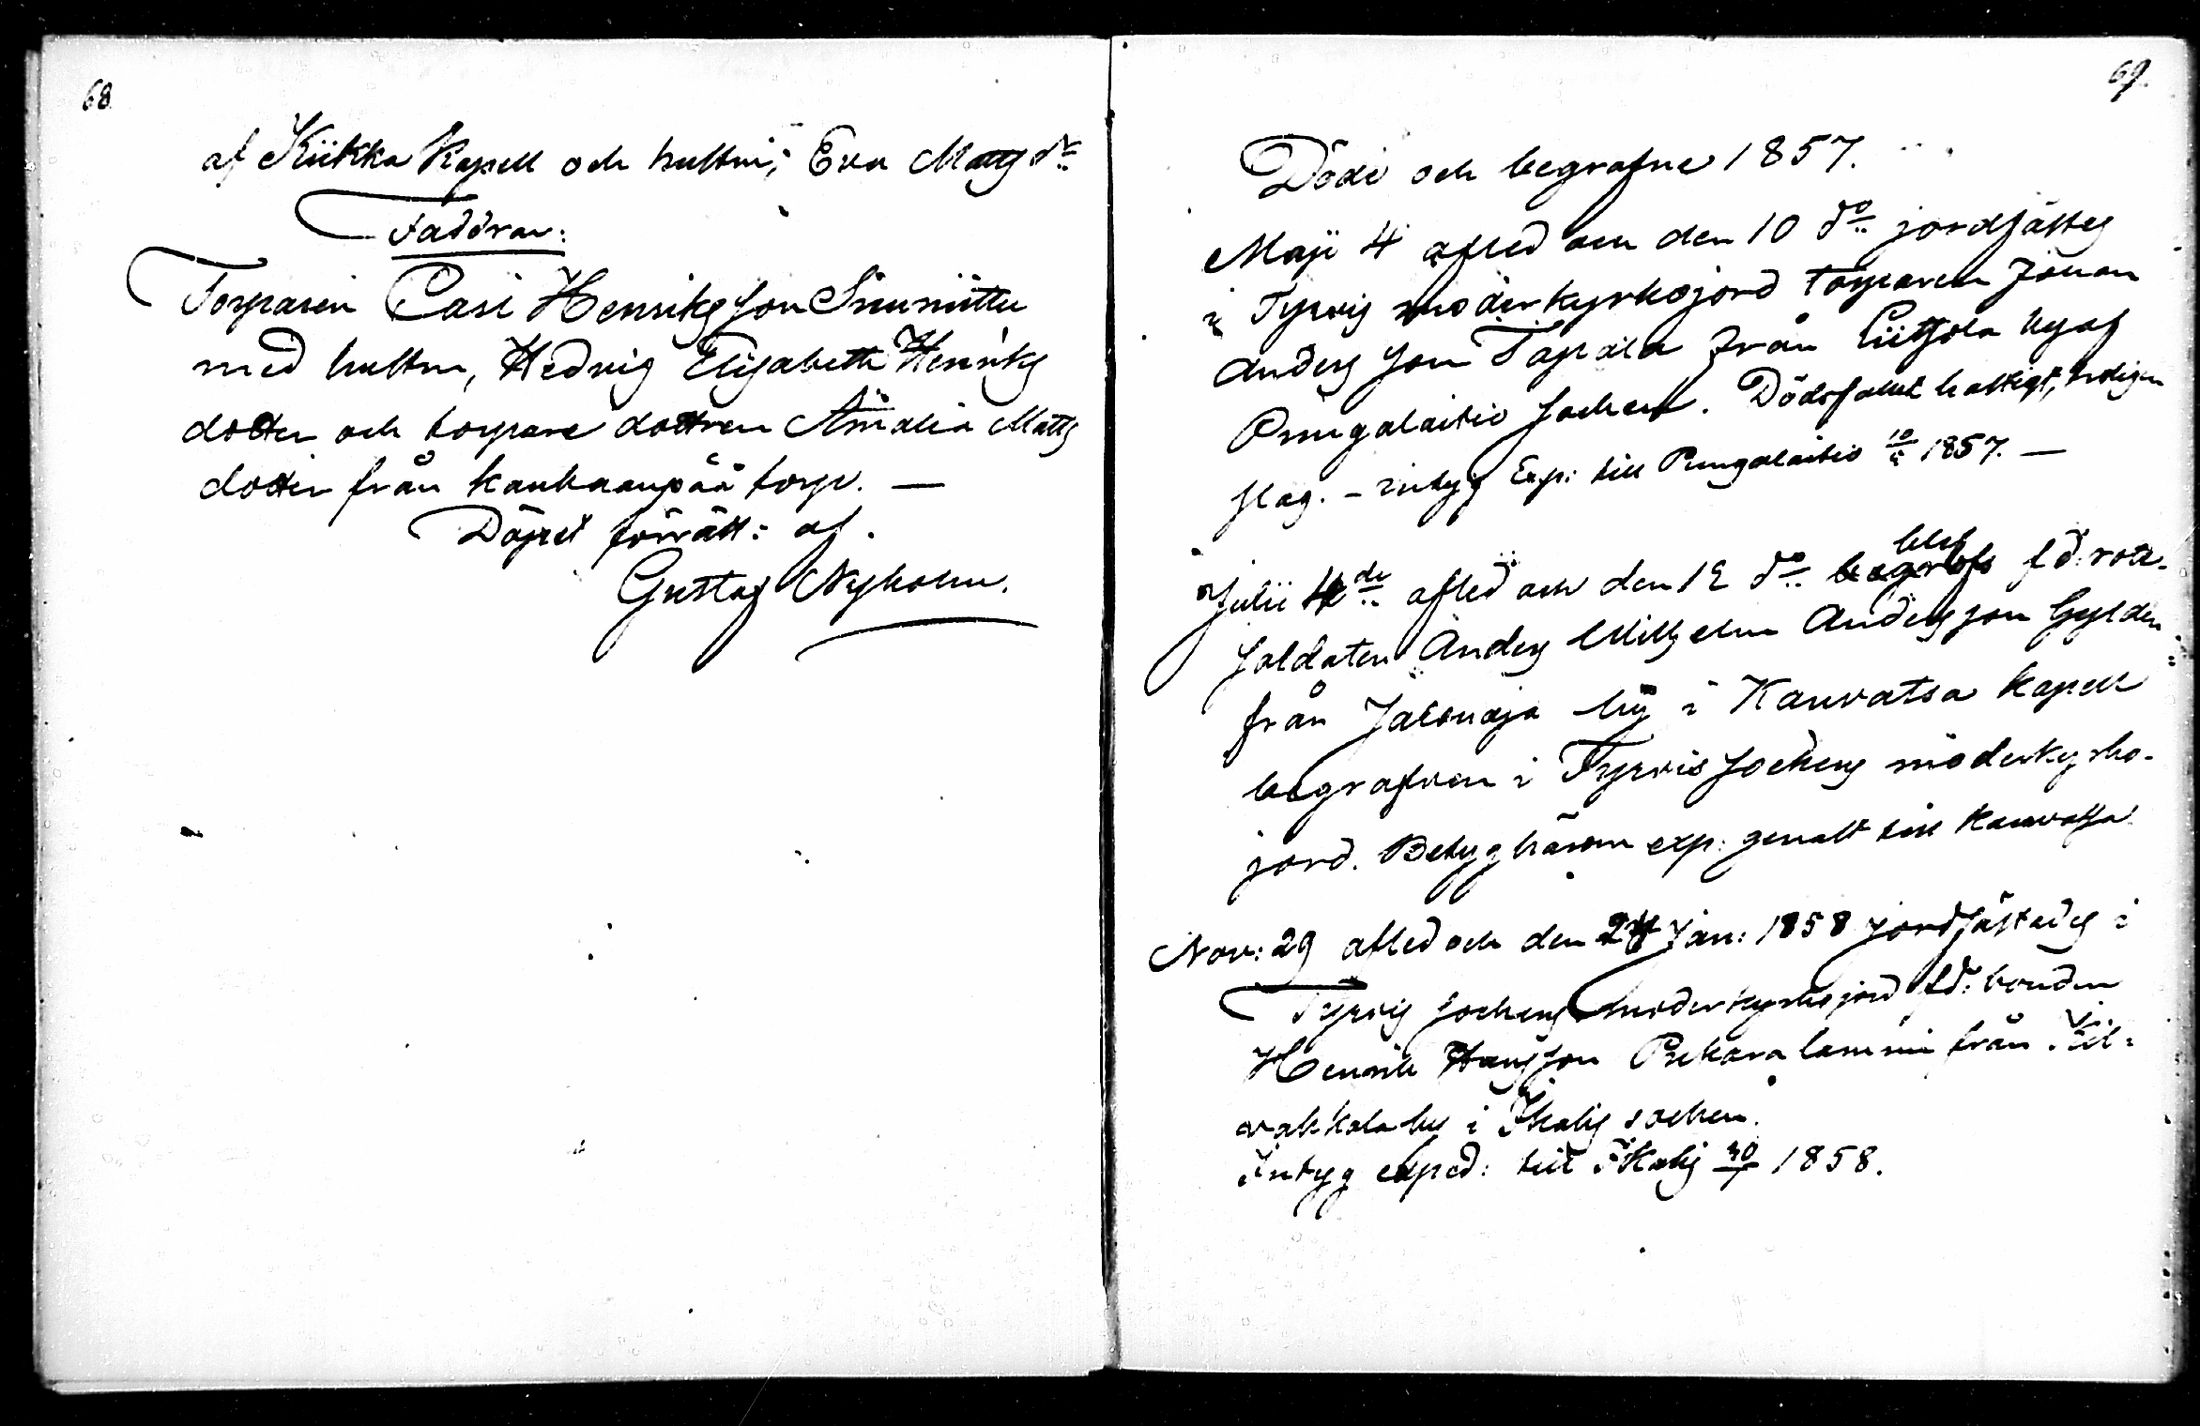 68.
af Kiikka Kapell och hustru, Eva Matts dr
Faddrar:
Torparen Carl Henriksson Sinumiittu
med hustru, Hedvig Elisabeth Henriks
dotter och torpare dottren Amalia Matts
dotter från Kankaanpää torp. —
Döpet förrätt: af.
Gustaf Nyholm.
69.
Döde och begrafne 1857.
Maji 4 afled och den 10 do jordfästes
i Tyrvis moderkyrkojord torparen Johan
Anders son Tapala från Liitsola by af
Pungalaitio socken. Dödsfallet hastigt, troligen
slag. – intyg Exp: till Pungalaitio 10/5 1857. —
Julii 4de afled och den 12 do blef begrofs fd: rote-
soldaten Anders Wilhelm Andersson Gylden
från Jalonoja by i Kauvatsa Kapell
begrafven i Tyrvis sockens moderkyrko-
jord. Betyg härom exp: genast till Kauvatsa
Nov: 29 afled och den 24 Jan: 1858 jordfästades i
Tyrvis sockens moderkyrkojord fd: bonden
Henrik Hansson Pukara lammi från Kil-
vakkala by i Ikalis socken.
Intyg exped: till Ikalis 30/1 1858.